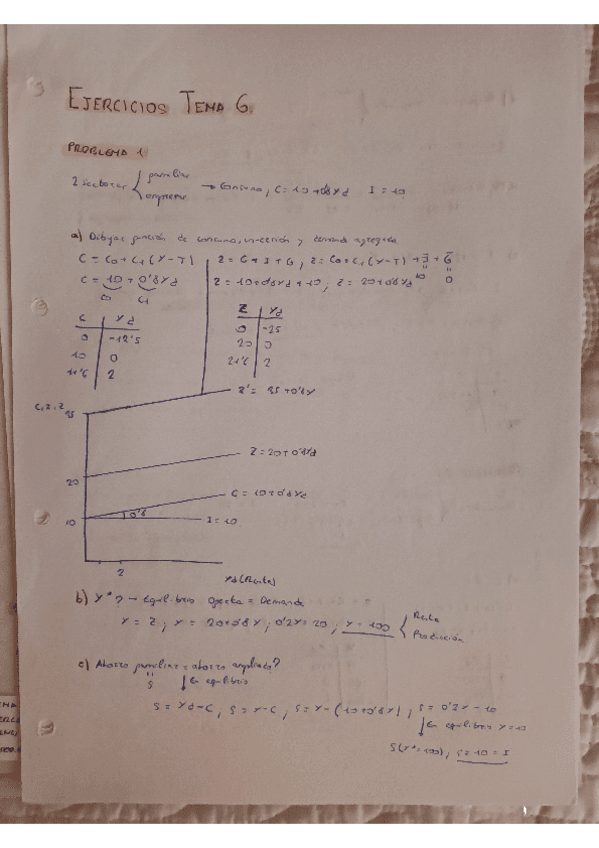 EJERCICIOS TEMA 6.
PROBLEMA 1.
2 sectores → Consumo, C = 10 + 0'8 Yd I = 10
a) Dibujar función de consumo, inversión y demanda agregada
C = C0 + C1 (Y - T) Z = C + I + G, Z = C0 + C1 (Y - T) + I + G
C = 10 + 0'8 Yd Z = 10 + 0'8 Yd + 10; Z = 20 + 0'8 Yd 10 0
C0 C1
C Yd Z Yd
0 -12'5 0 -25
10 0 20 0
11'6 2 21'6 2
Z' = 35 + 0'8 Y
35
Z = 20 + 0'8 Yd
20
C = 10 + 0'8 Yd
10 0'8 I = 10
2 Yd (Renta)
b) Y* ? → Equilibrio Oferta = Demanda
Y = Z; Y = 20 + 0'8 Y; 0'2 Y = 20; Y = 100 Renta
Producción
c) Ahorro familiar = ahorro ?
S En equilibrio
S = Yd - C, S = Y - C, S = Y - (10 + 0'8 Y), S = 0'2 Y - 10
En equilibrio
S (Y* = 100), S = 10 = I